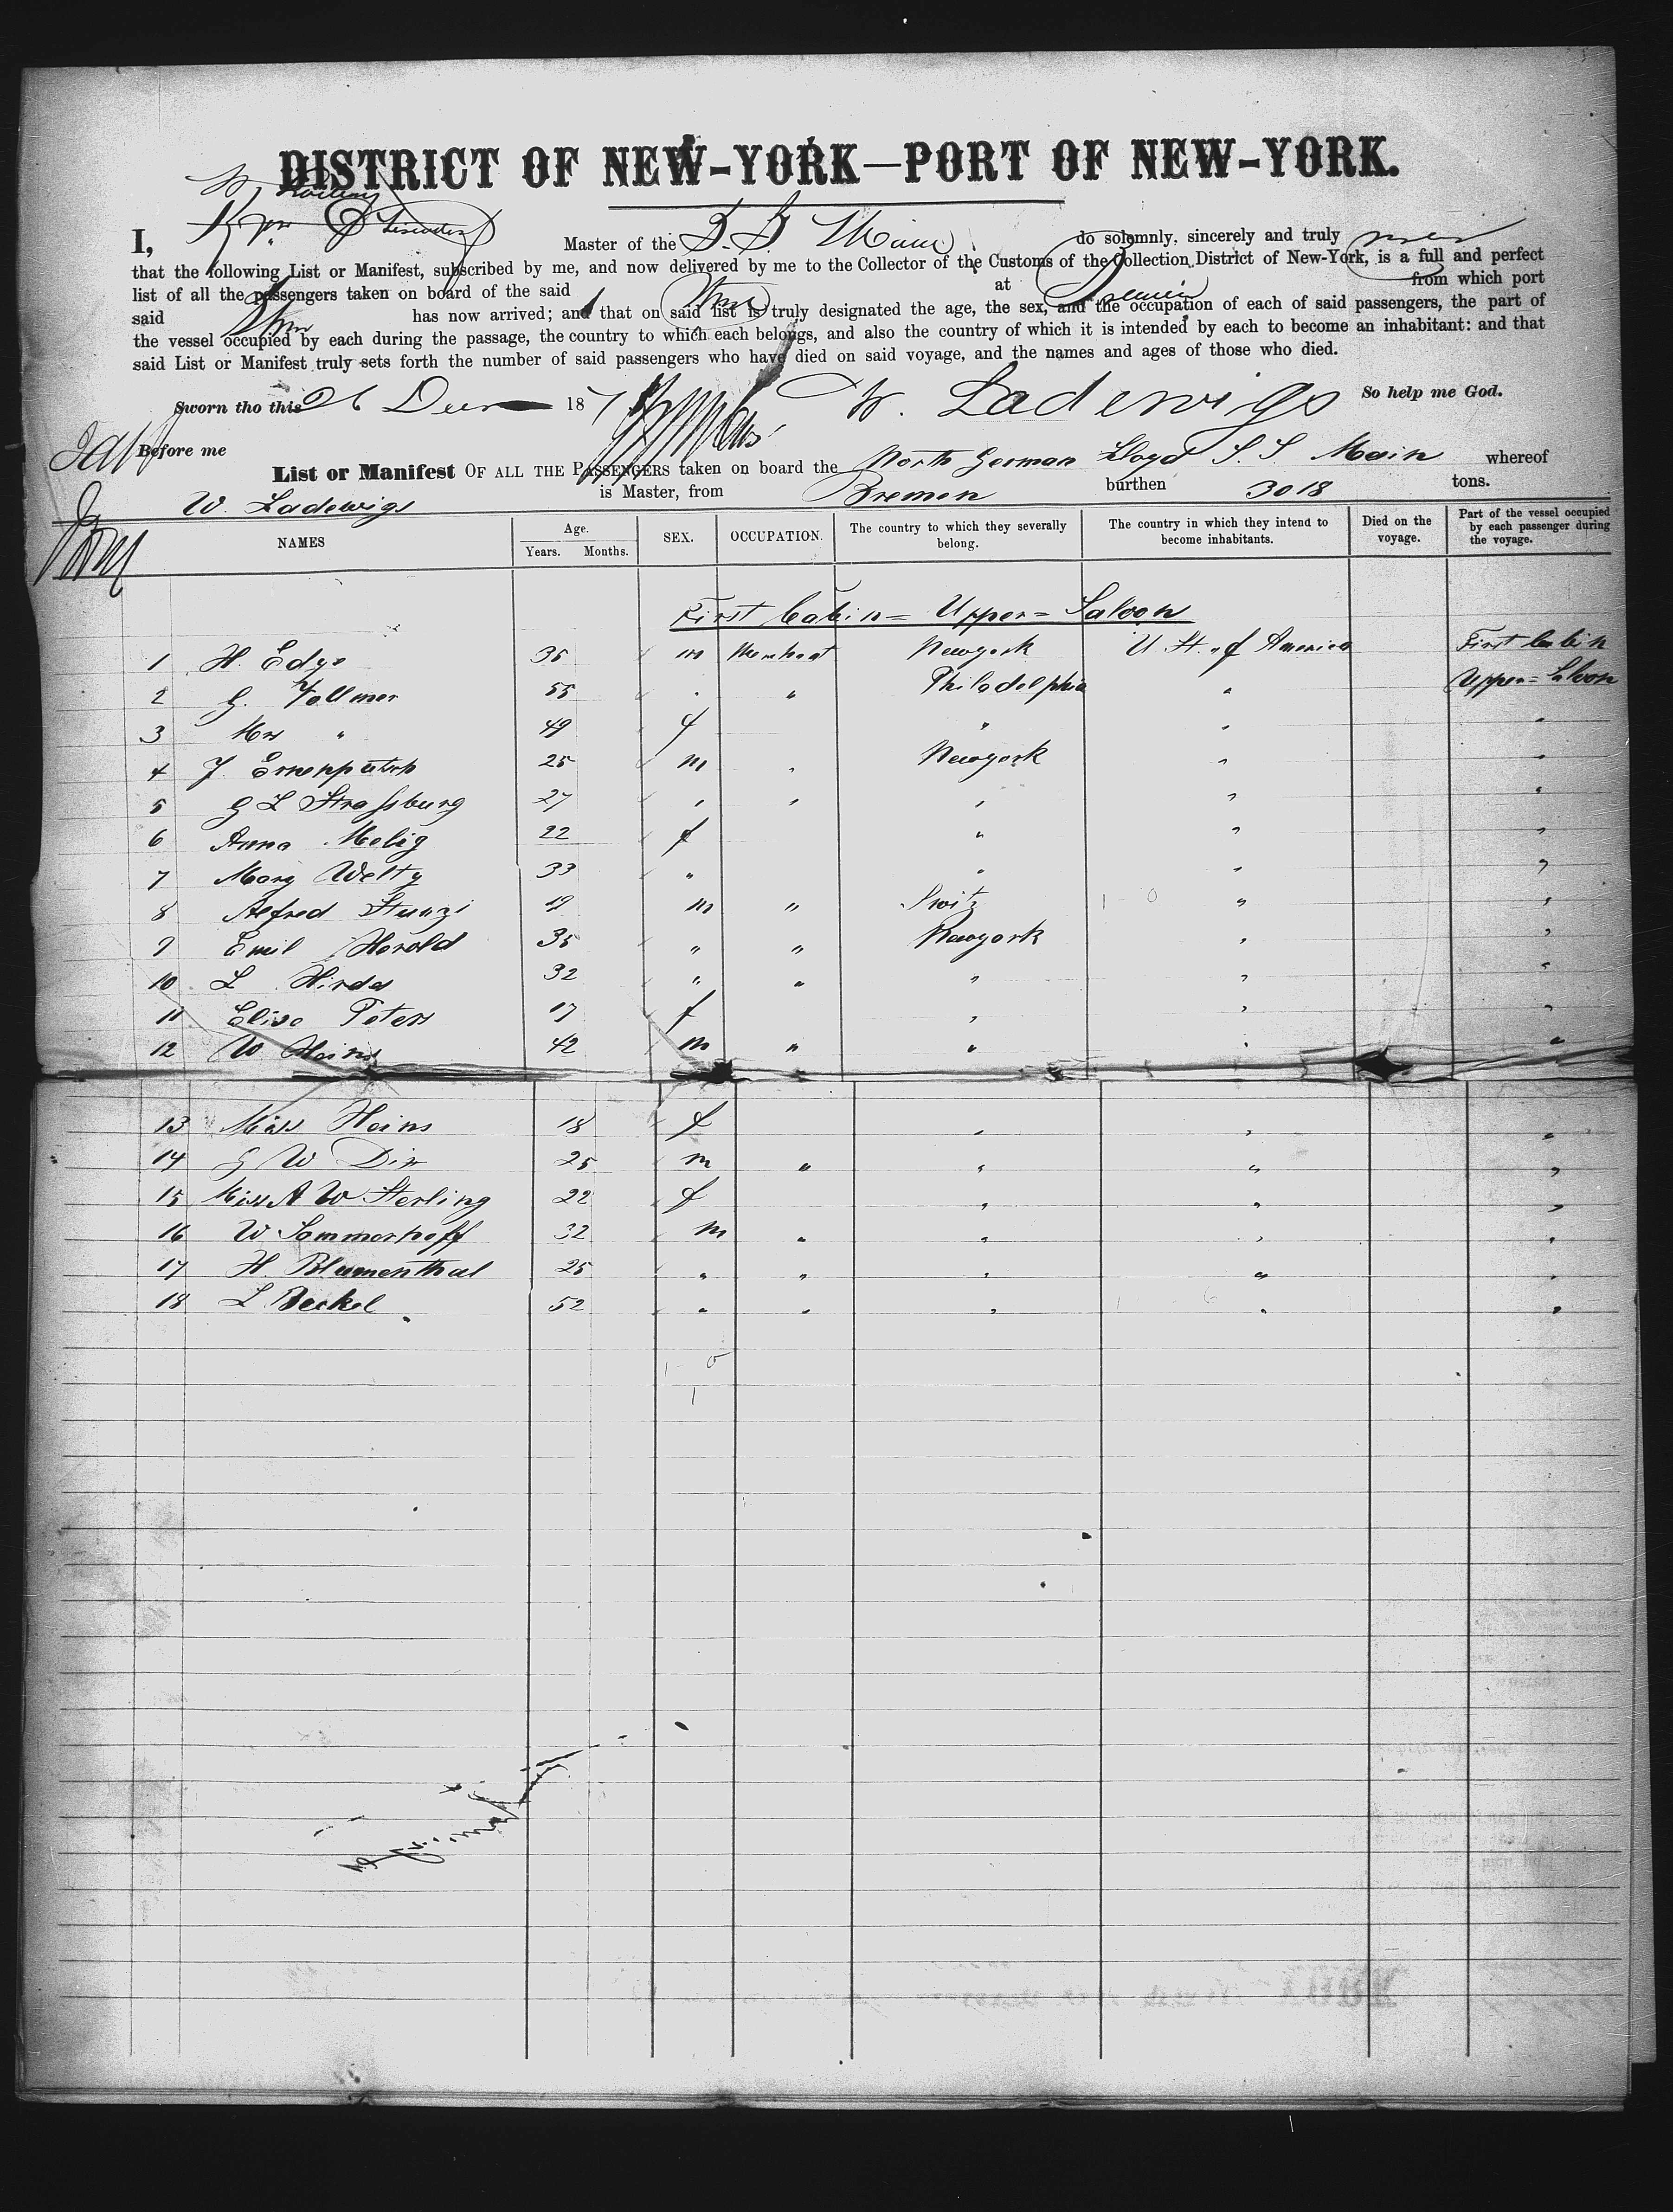 DISTRICT OF NEW-YORK—PORT OF NEW-YORK.
I, Master of the S.S. Main do solemnly, sincerely and truly swear
that the following List or Manifest, subscribed by me, and now delivered by me to the Collector of the Customs of the Collection District of New-York, is a full and perfect
list of all the passengers taken on board of the said Stmr at Bremen from which port
said Stmr has now arrived; and that on said list is truly designated the age, the sex, and the occupation of each of said passengers, the part of
the vessel occupied by each during the passage, the country to which each belongs, and also the country of which it is intended by each to become an inhabitant: and that
said List or Manifest truly sets forth the number of said passengers who have died on said voyage, and the names and ages of those who died.
Sworn tho this 26 187 W. Ladewigs So help me God.
Before me
List or Manifest OF ALL THE PASSENGERS taken on board the North German Lloyd S. S Main whereof
W. Ladewigs is Master, from Bremen burthen 3018 tons.
NAMES Age. Years. Months. SEX. OCCUPATION. The country to which they severally belong. The country in which they intend to become inhabitants. Died on the voyage. Part of the vessel occupied by each passenger during the voyage.
First Cabin = Upper = Saloon
1 H. Edye 35 m Merchant Newyork U. St. of America First Cabin
2 G. Vollmer 55 " " Philadelphia " Upper = Saloon
3 Mrs " 49 f " " "
4 J. 25 m " Newyork " "
5 G L Strassburg 27 " " " " "
6 Anna Melig 22 f " " "
7 Mary Welty 33 " " " "
8 Alfred Stunzi 19 m " Switz 1 - 0 " "
9 Emil Herold 35 " " Newyork " "
10 L 32 " " " " "
11 Elise Peters 17 f " " "
12 W Heins 42 m " " " "
13 Miss Heins 18 f " " "
14 G W Dix 25 m " " " "
15 Miss A W Sterling 22 f " " "
16 W Sommerhoff 32 m " " " "
17 H Blumenthal 25 " " " " "
18 L Beckel 52 " " " " "